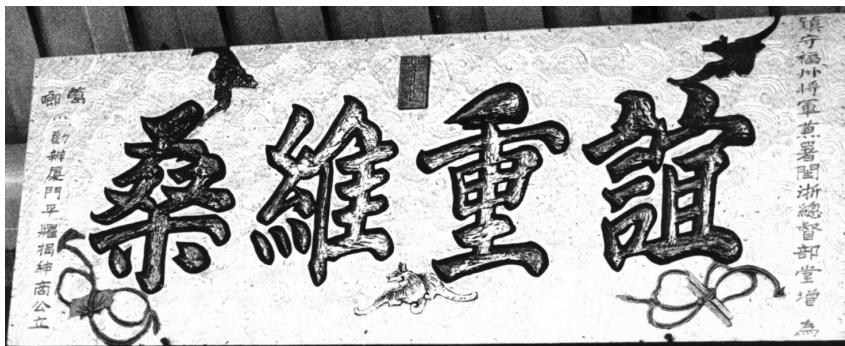 鎮守福州將軍兼署閩浙總督部堂增為
誼重維桑
萬啷
勸辦厦門平糶捐紳商公立